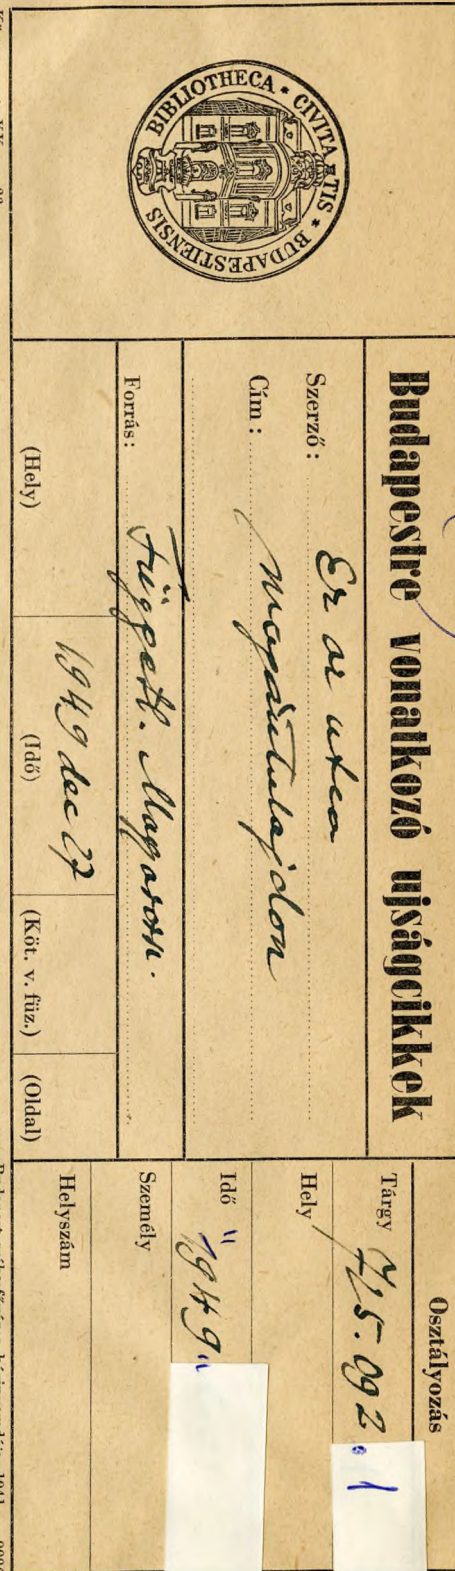 BIBLIOTHECA * CIVITATIS * BUDAPESTIENSIS
Budapestre vonatkozó ujságcikkek
Szerző:
Ez az utca
Cím:
magántulajdon
Forrás:
Függetl. Magyarorsz.
1949 dec 27
(Hely)
(Idő)
(Köt. v. füz.)
(Oldal)
Osztályozás
Tárgy 725.092.1
Hely
Idő "1949"
Személy
Helyszám